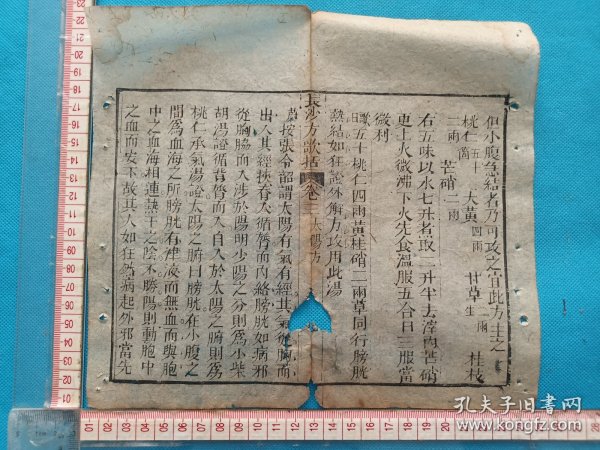 但小腹急結者乃可攻之宜此方主之
桃仁五十箇 大黃四兩 甘草二兩 桂枝
二兩 芒硝二兩
右五味以水七升者取二升半去滓內芒硝
更上火微沸下火先食溫服五合日三服當
微利
五十桃仁四兩黃桂硝二兩草同行膀胱
熱結如狂證外解方攻用此湯
長沙方歌括 卷三 太陽方
蔚按張令韶謂太陽有氣有經其氣從胸而
出入其經挾脊入循膂而內絡膀胱如病邪
從胸脇而入涉於陽明少陽之分則為小柴
胡湯證循背膂而入自入於太陽之腑則為
桃仁承氣湯證太陽之腑曰膀胱在小腹之
間為血海之所膀胱有津液而無血而與胞
中之血海相連熱干之陰不勝陽則動胞中
之血而安不故其人如狂然病起外邪當先
孔夫子旧书网
www.kongfz.com